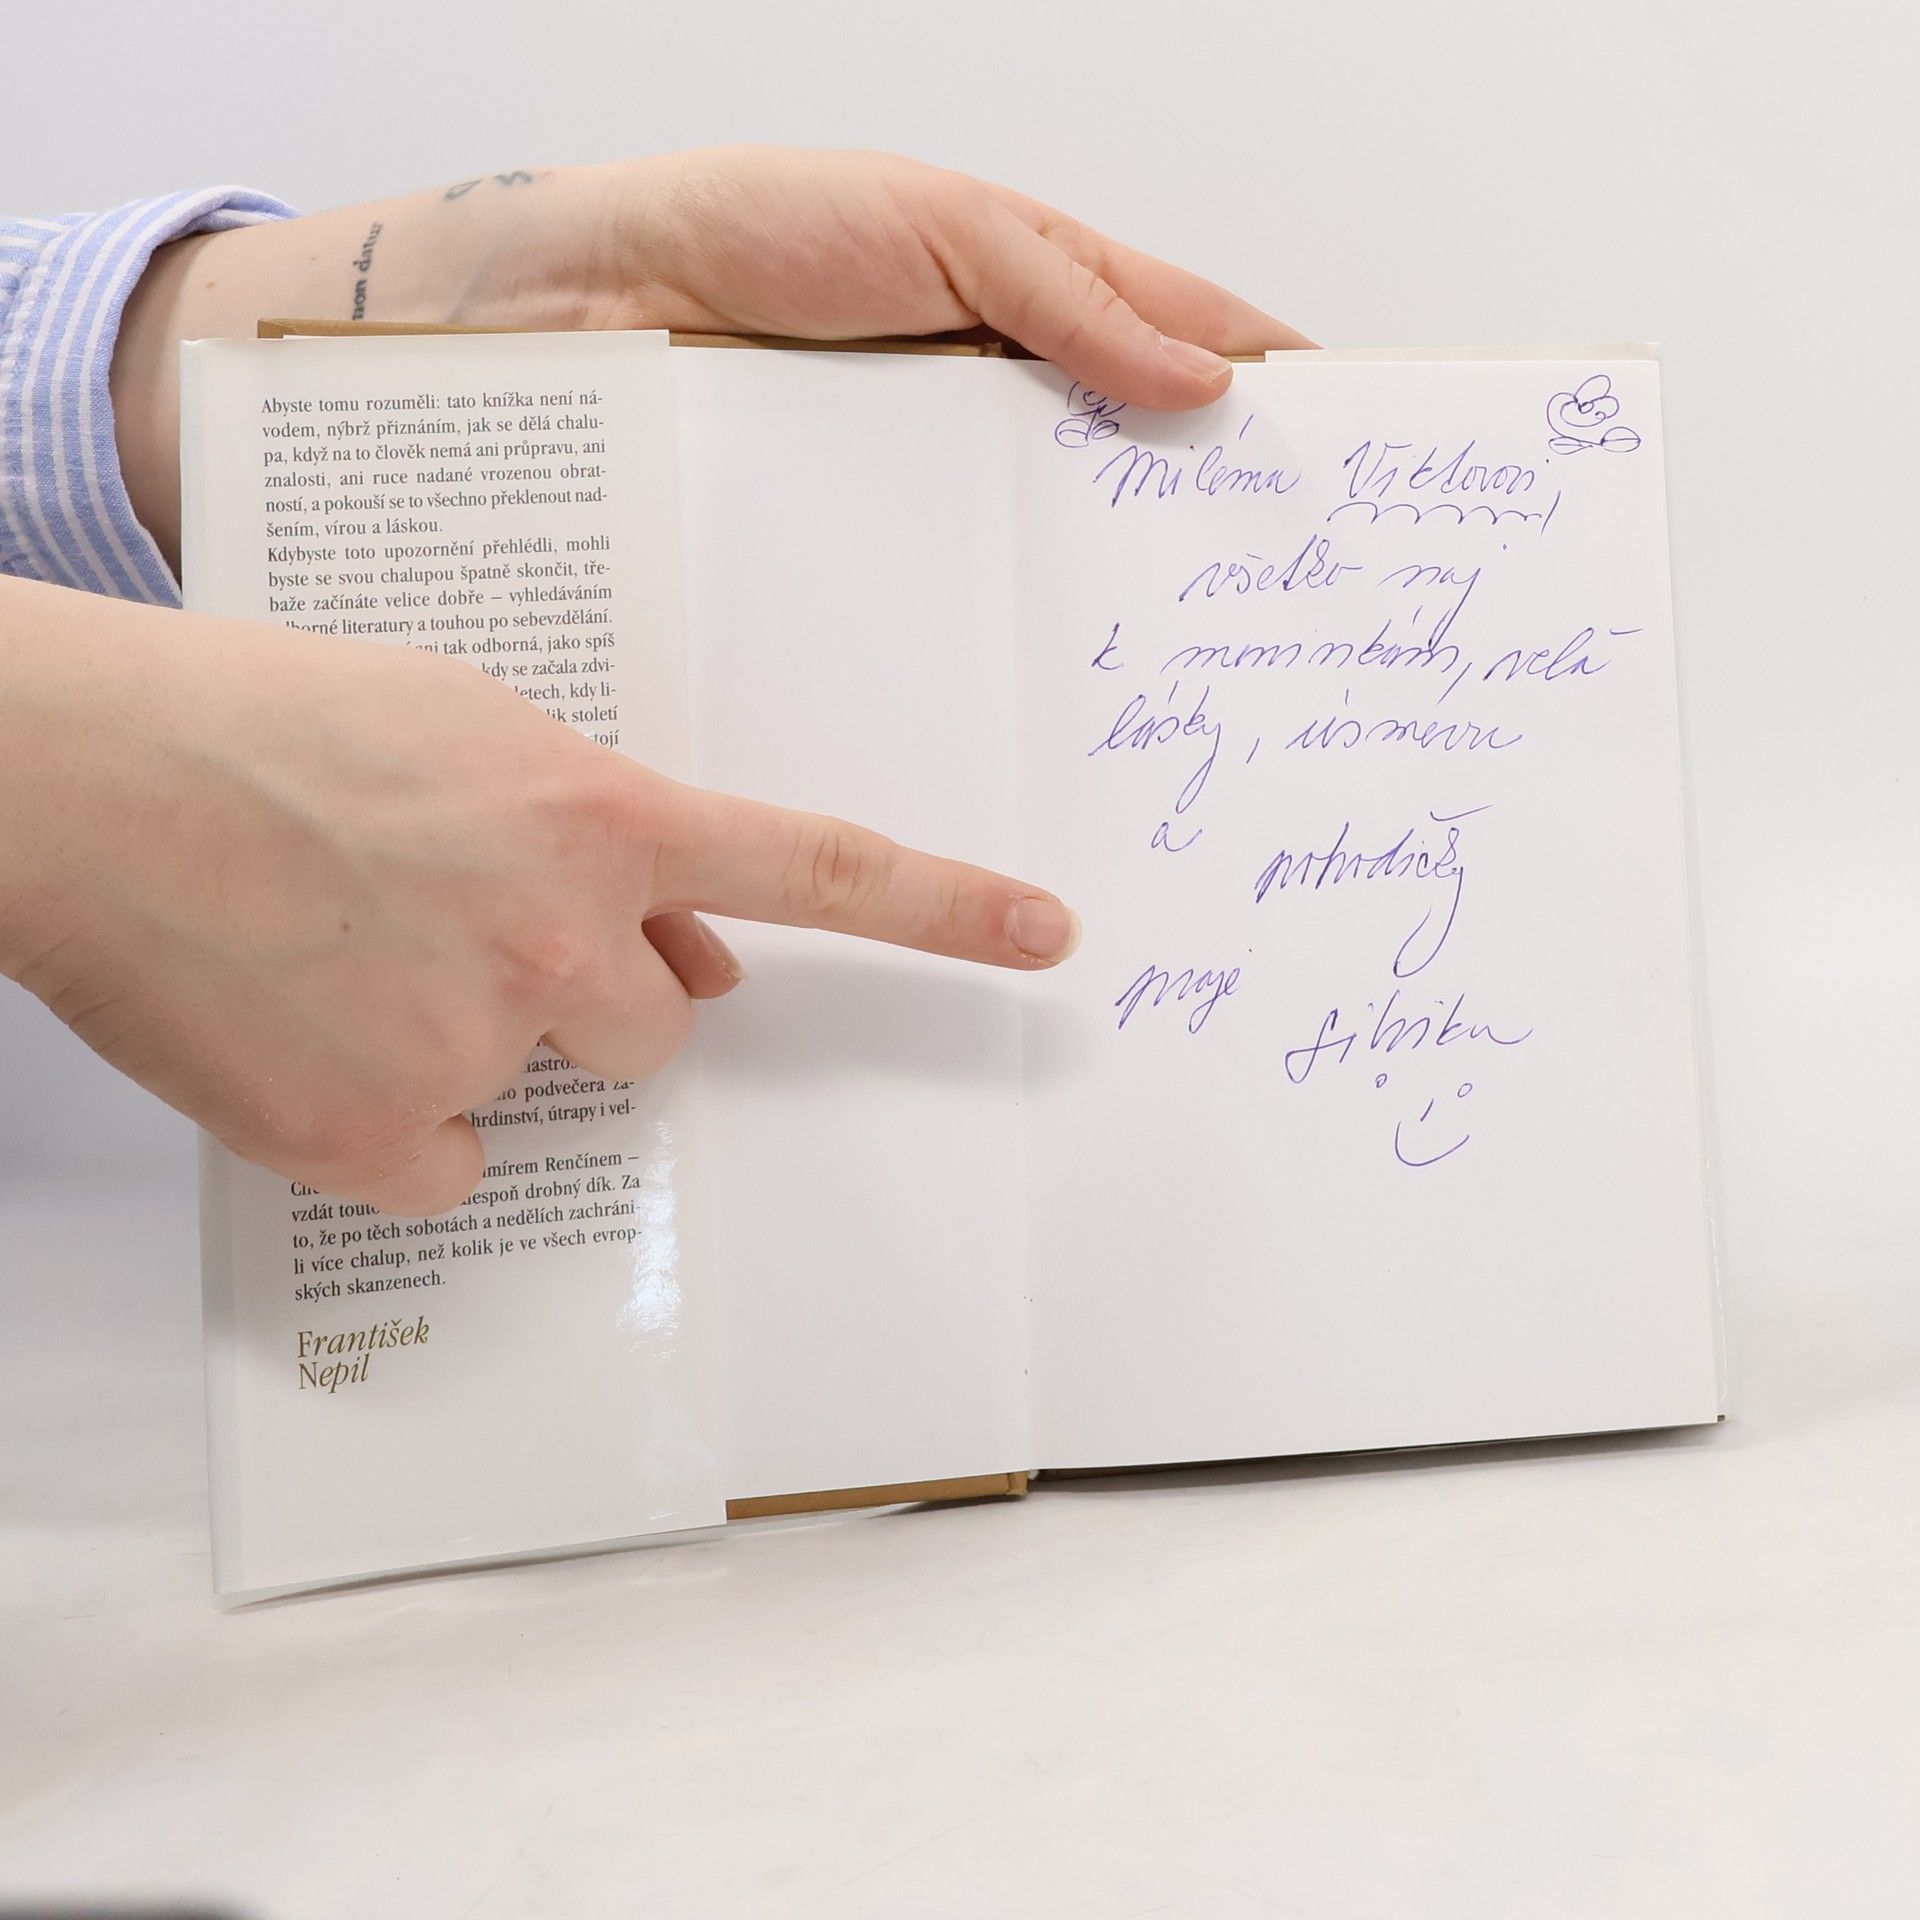 non datur
Abyste tomu rozuměli: tato knížka není ná-
vodem, nýbrž přiznáním, jak se dělá chalu-
pa, když na to člověk nemá ani průpravu, ani
znalosti, ani ruce nadané vrozenou obrat-
ností, a pokouší se to všechno překlenout nad-
šením, vírou a láskou.
Kdybyste toto upozornění přehlédli, mohli
byste se svou chalupou špatně skončit, tře-
baže začínáte velice dobře – vyhledáváním
literatury a touhou po sebevzdělání.
tak odborná, jako spíš
kdy se začala zdvi-
letech, kdy li-
století
podvečera za-
hrdinství, útrapy i vel-
Renčínem –
vzdát drobný dík. Za
to, že po těch sobotách a nedělích zachráni-
li více chalup, než kolik je ve všech evrop-
ských skanzenech.
František
Nepil
Milému Viktorovi
všetko naj
k meninkám, velă
lásky, úsmevu
a pohodičky
praje
Silvika